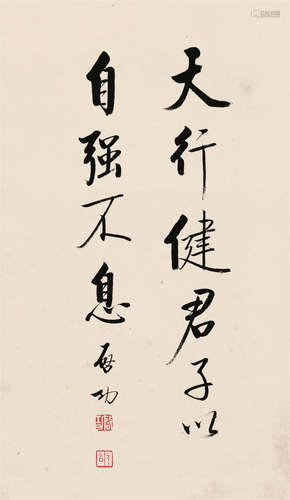 天行健君子以
自强不息
启功